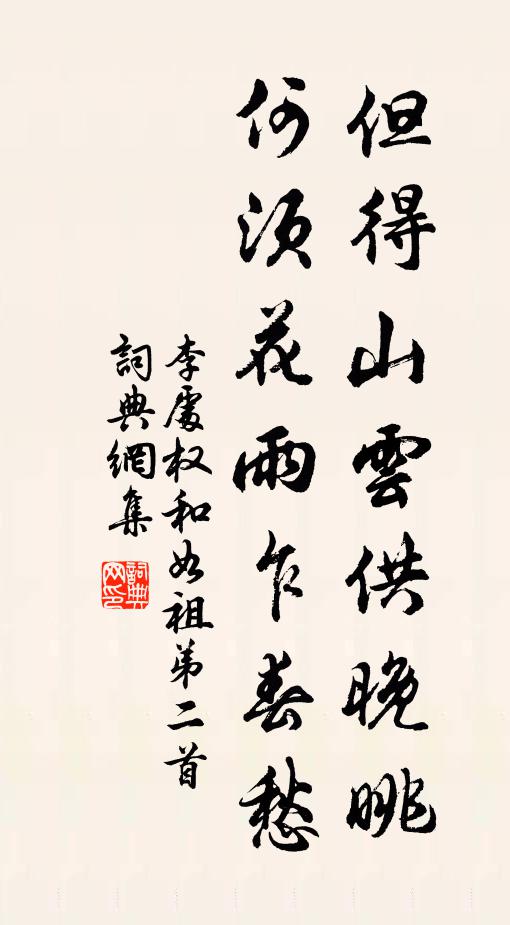 但得山雲供晚眺
何須花雨乍春愁
李處权和如祖弟二首
詞典網集
詞典网印